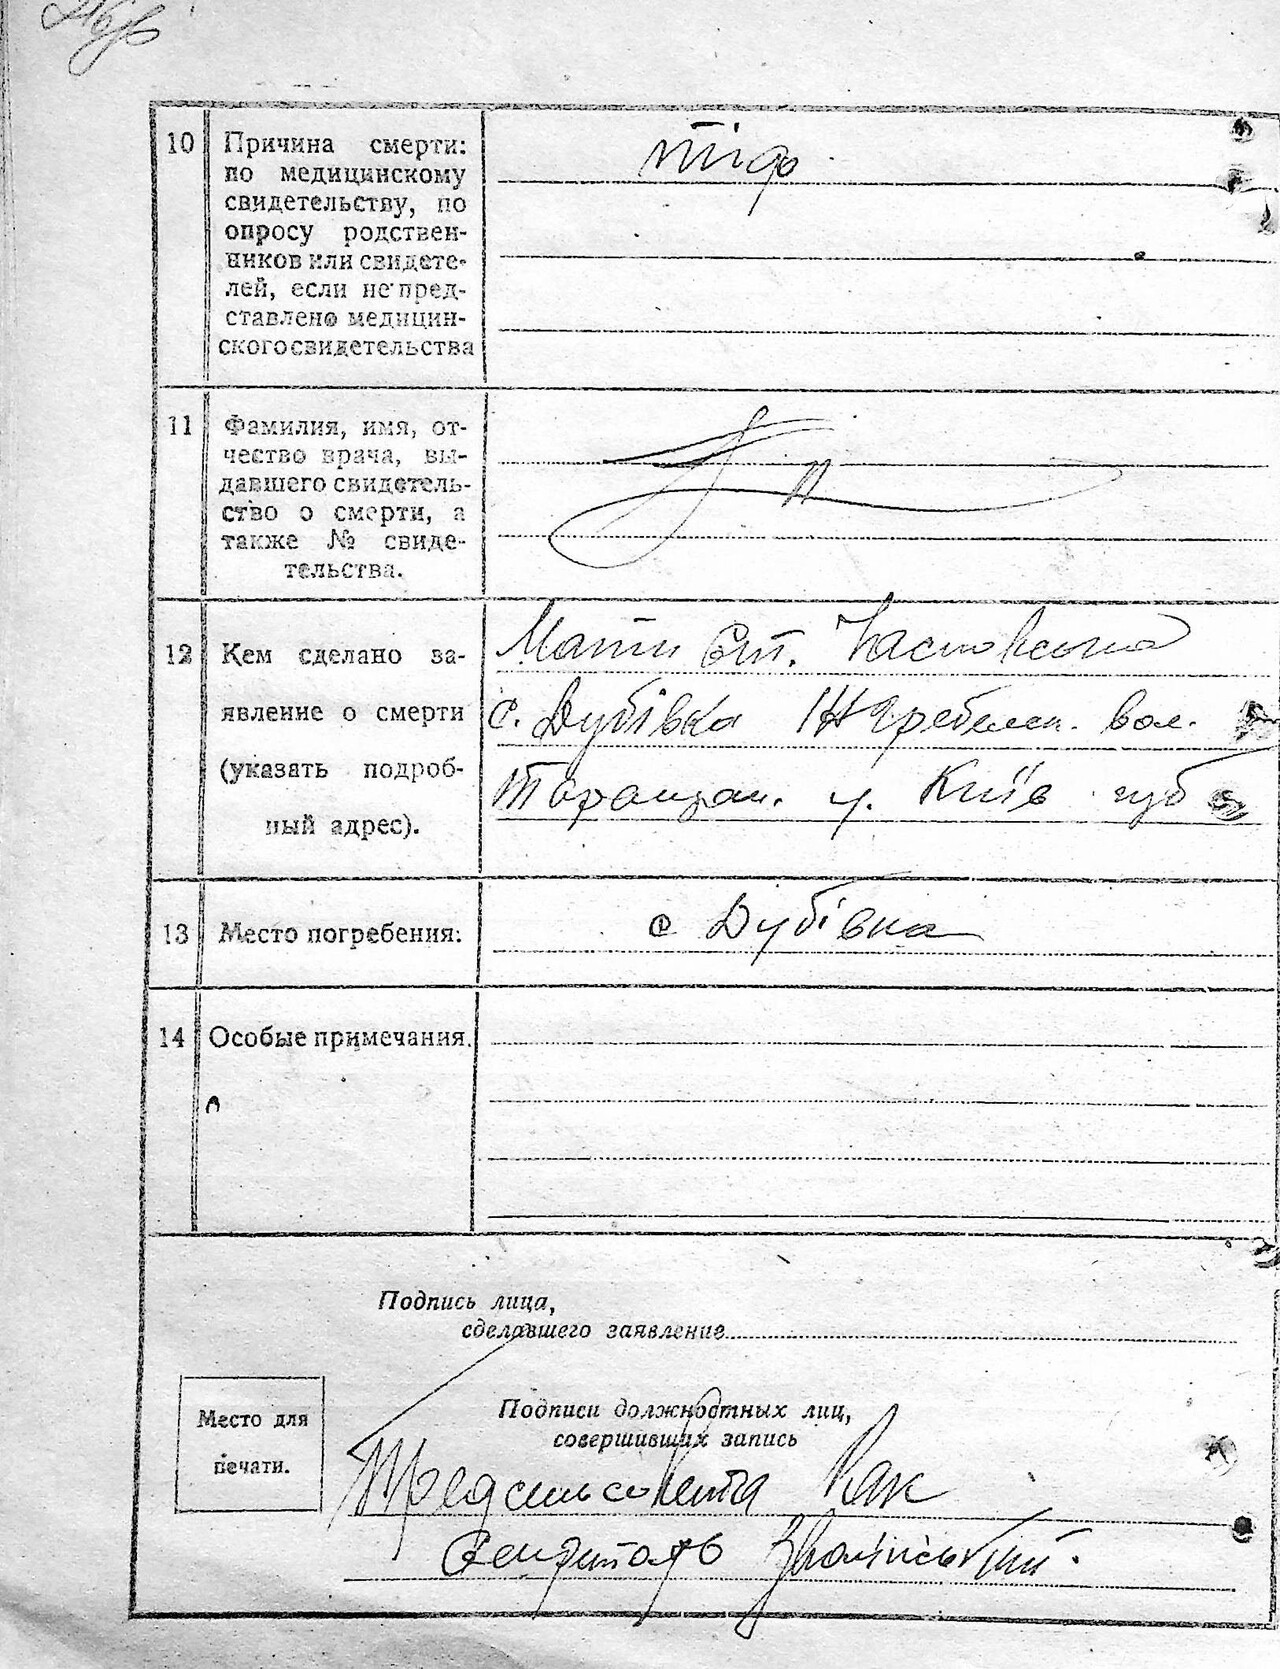 10 Причина смерти:
по медицинскому
свидетельству, по
опросу родствен-
ников или свидете-
лей, если не пред-
ставлено медицин-
ского свидетельства
тіф
11 Фамилия, имя, от-
чество врача, вы-
давшего свидетель-
ство о смерти, а
также № свиде-
тельства.
12 Кем сделано за-
явление о смерти
(указать подроб-
ный адрес).
Мати
с. Дубівка вол.
Таращан. у. Київ губ
13 Место погребения:
с Дубівка
14 Особые примечания.
Подпись лица,
сделавшего заявление
Место для
печати.
Подписи должностных лиц,
совершивших запись
Предсильсовета
Секритарь